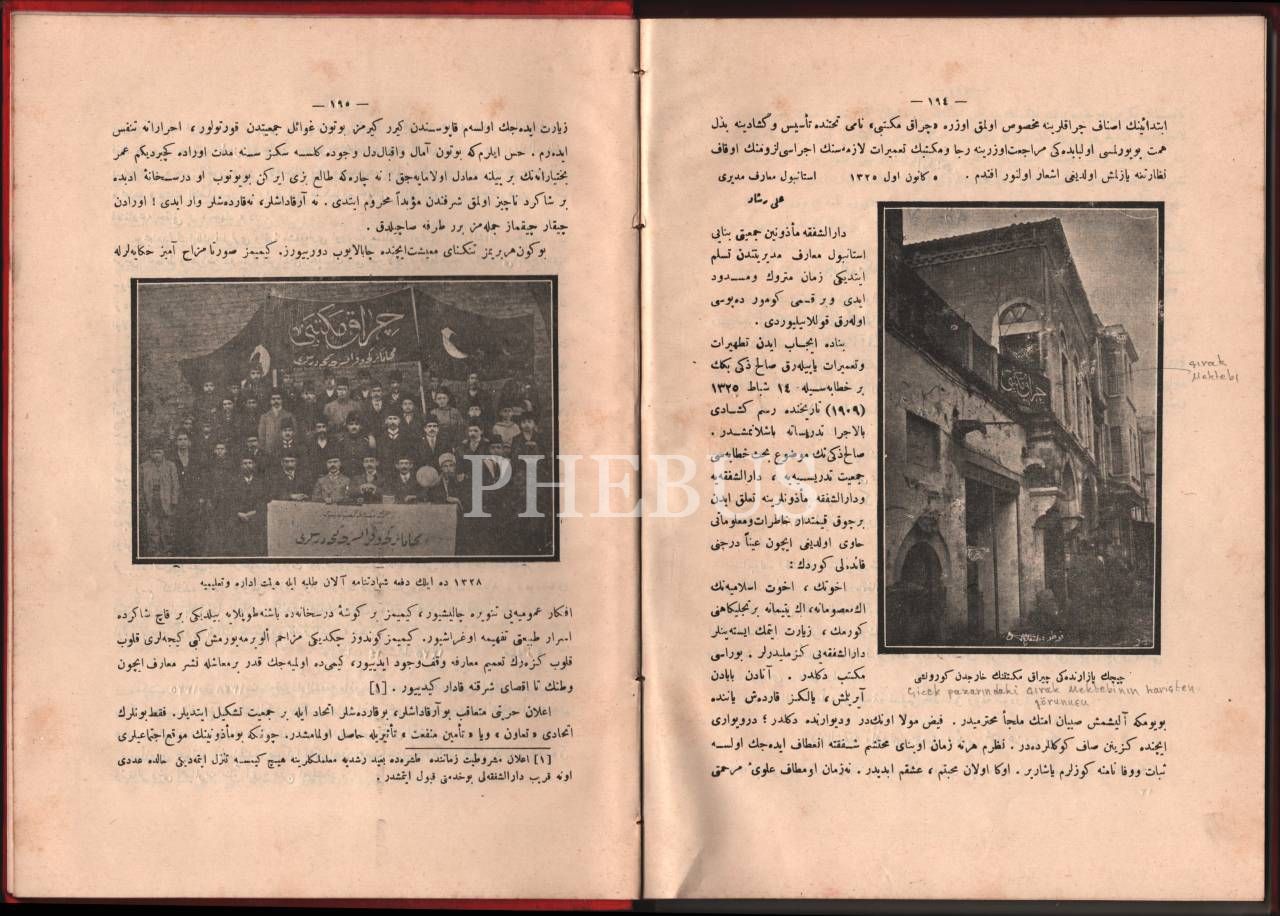 — ١٩٤ —
ابتدائینك اصناف چراقلرینه مخصوص اولمق اوزره «چراق مكتبی» نامی تحتنده تأسیس وگشادینه بذل
همت بویورلمسی اولبابده‌كی مراجعت اوزرینه رجا ومكتبك تعمیرات لازمه‌سنك اجراسی لزومنك اوقاف
نظارتنه یازلمش اولدیغی اشعار اولنور افندم . ٥ كانون اول ١٣٢٥ استانبول معارف مدیری
علی رشاد
دارالشفقه مأذونین جمعیتی بنایی
استانبول معارف مدیریتندن تسلم
ایتدیكی زمان متروك ومسدود
ایدی وبر قسمی كومور ده‌پوسی
اوله‌رق قوللانیلیوردی .
بناده ایجاب ایدن تطهیرات
وتعمیرات یاپیله‌رق صالح ذكی بكك
بر خطابه‌سیله ١٤ شباط ١٣٢٥
(١٩٠٩) تاریخنده رسم كشادی
بالاجرا تدریساته باشلانمشدر .
صالح ذكی‌نك موضوع بحث خطابه‌سی
جمعیت تدریسیه‌یه ، دارالشفقه‌یه
ودارالشفقه مأذونلرینه تعلق ایدن
برچوق قیمتدار خاطرات ومعلوماتی
حاوی اولدیغی ایچون عیناً درجنی
فائده‌لی كوردك :
اخوتك ، اخوت اسلامیه‌نك
اك معصومانه ، اك یتیمانه برتجلیكاهنی
كورمك ، زیارت ایتمك ایسته‌ینلر
دارالشفقه‌یی كزملیدرلر . بوراسی
مكتب دكلدر . آنادن بابادن
آیرلش ، یالكز قارده‌ش یاننده
چیچك پازارنده‌كی چیراق مكتبنك خارجدن كورونشی
Çiçek pazarındaki Çırak Mektebinin hariçten
görünüşü
Çırak
Mektebi
بویومكه آلیشمش صبیان امتك ملجأ محترمیدر . فیض مولا اونك‌در ودیوارنده دكلدر ؛ درودیواری
ایچنده كزینن صاف كوكللرده‌در . نظرم هرنه زمان اوبنای محتشم شفقته انعطاف ایده‌جك اولسه
ثبات ووفا نامنه كوزلرم یاشاریر . اوكا اولان محبتم ، عشقم ابدیدر . نه‌زمان اومطاف علوئ مرحمتی
— ١٩٥ —
زیارت ایده‌جك اولسه‌م قاپوسندن كیرر كیرمز بوتون غوائل جمعیتدن قورتولور ، احرارانه تنفس
ایده‌رم . حس ایلرم كه بوتون آمال واقبال دل وجوده كلسه سكز سنه مدت اوراده كچیردیكم عمر
بختیارانه‌نك بر ییلنه معادل اولامایه‌جق ! نه چاره‌كه طالع بزی ایركن بویوتوب او درسخانهٔ ادبده
بر شاكرد ناچیز اولمق شرفندن مؤبداً محروم ایتدی . نه آرقاداشلر ، نه‌قارده‌شلر وار ایدی ! اورادن
چیقار چیقماز جمله‌مز بر طرفه صاچیلدق .
بوكون هربریمز تنكنای معیشت ایچنده چابالایوب دورییورز. كیمیمز صورتا مزاح آمیز حكایه‌لرله
چراق مكتبی
١٣٢٨ ده ایلك دفعه شهادتنامه آلان طلبه ایله هیئت اداره وتعلیمیه
افكار عمومیه‌یی تنویره چالیشیور ، كیمیمز بر كوشهٔ درسخانه‌ده باشنه طوپلانه بیلدیكی بر قاچ شاكرده
اسرار طبیعتی تفهیمه اوغراشیور. كیمیمز كوندوز چكدیكی مزاحم الویرمه‌یورمش كبی كیجه‌لری قلوب
قلوب كزه‌رك تعمیم معارفه وقف‌وجود ایدییور، كیمی‌ده اولمیه‌جق قدر برمعاشله نشر معارف ایچون
وطنك تا اقصای شرقنه قادار كیدییور . [١]
اعلان حریتی متعاقب بوآرقاداشلر، بوقارده‌شلر اتحاد ایله بر جمعیت تشكیل ایتدیلر. فقط بونلرك
اتحادی « تعاون » ویا « تأمین منفعت » تأثیریله حاصل اولمامشدر. چونكه بومأذونینك موقع اجتماعیلری
[١] اعلان مشروطیت زماننده طشره‌ده بعید رشدیه معلملكلرینه هیچ كیمسه تنزل ایتمه‌دیكی حالده عددی
اونه قریب دارالشفقه‌لی بوخدمتی قبول ایتمشدر .
PHEBUS